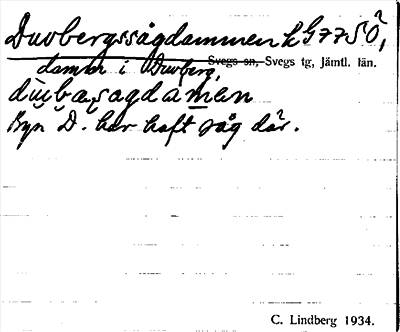 Duvbergssågdammen k G 77 SÖ,
damm i Duvberg, Svegs sn, Svegs tg, Jämtl. län.
dụvbæṣagdamen
Byn D. har haft såg där.
C. Lindberg 1934.